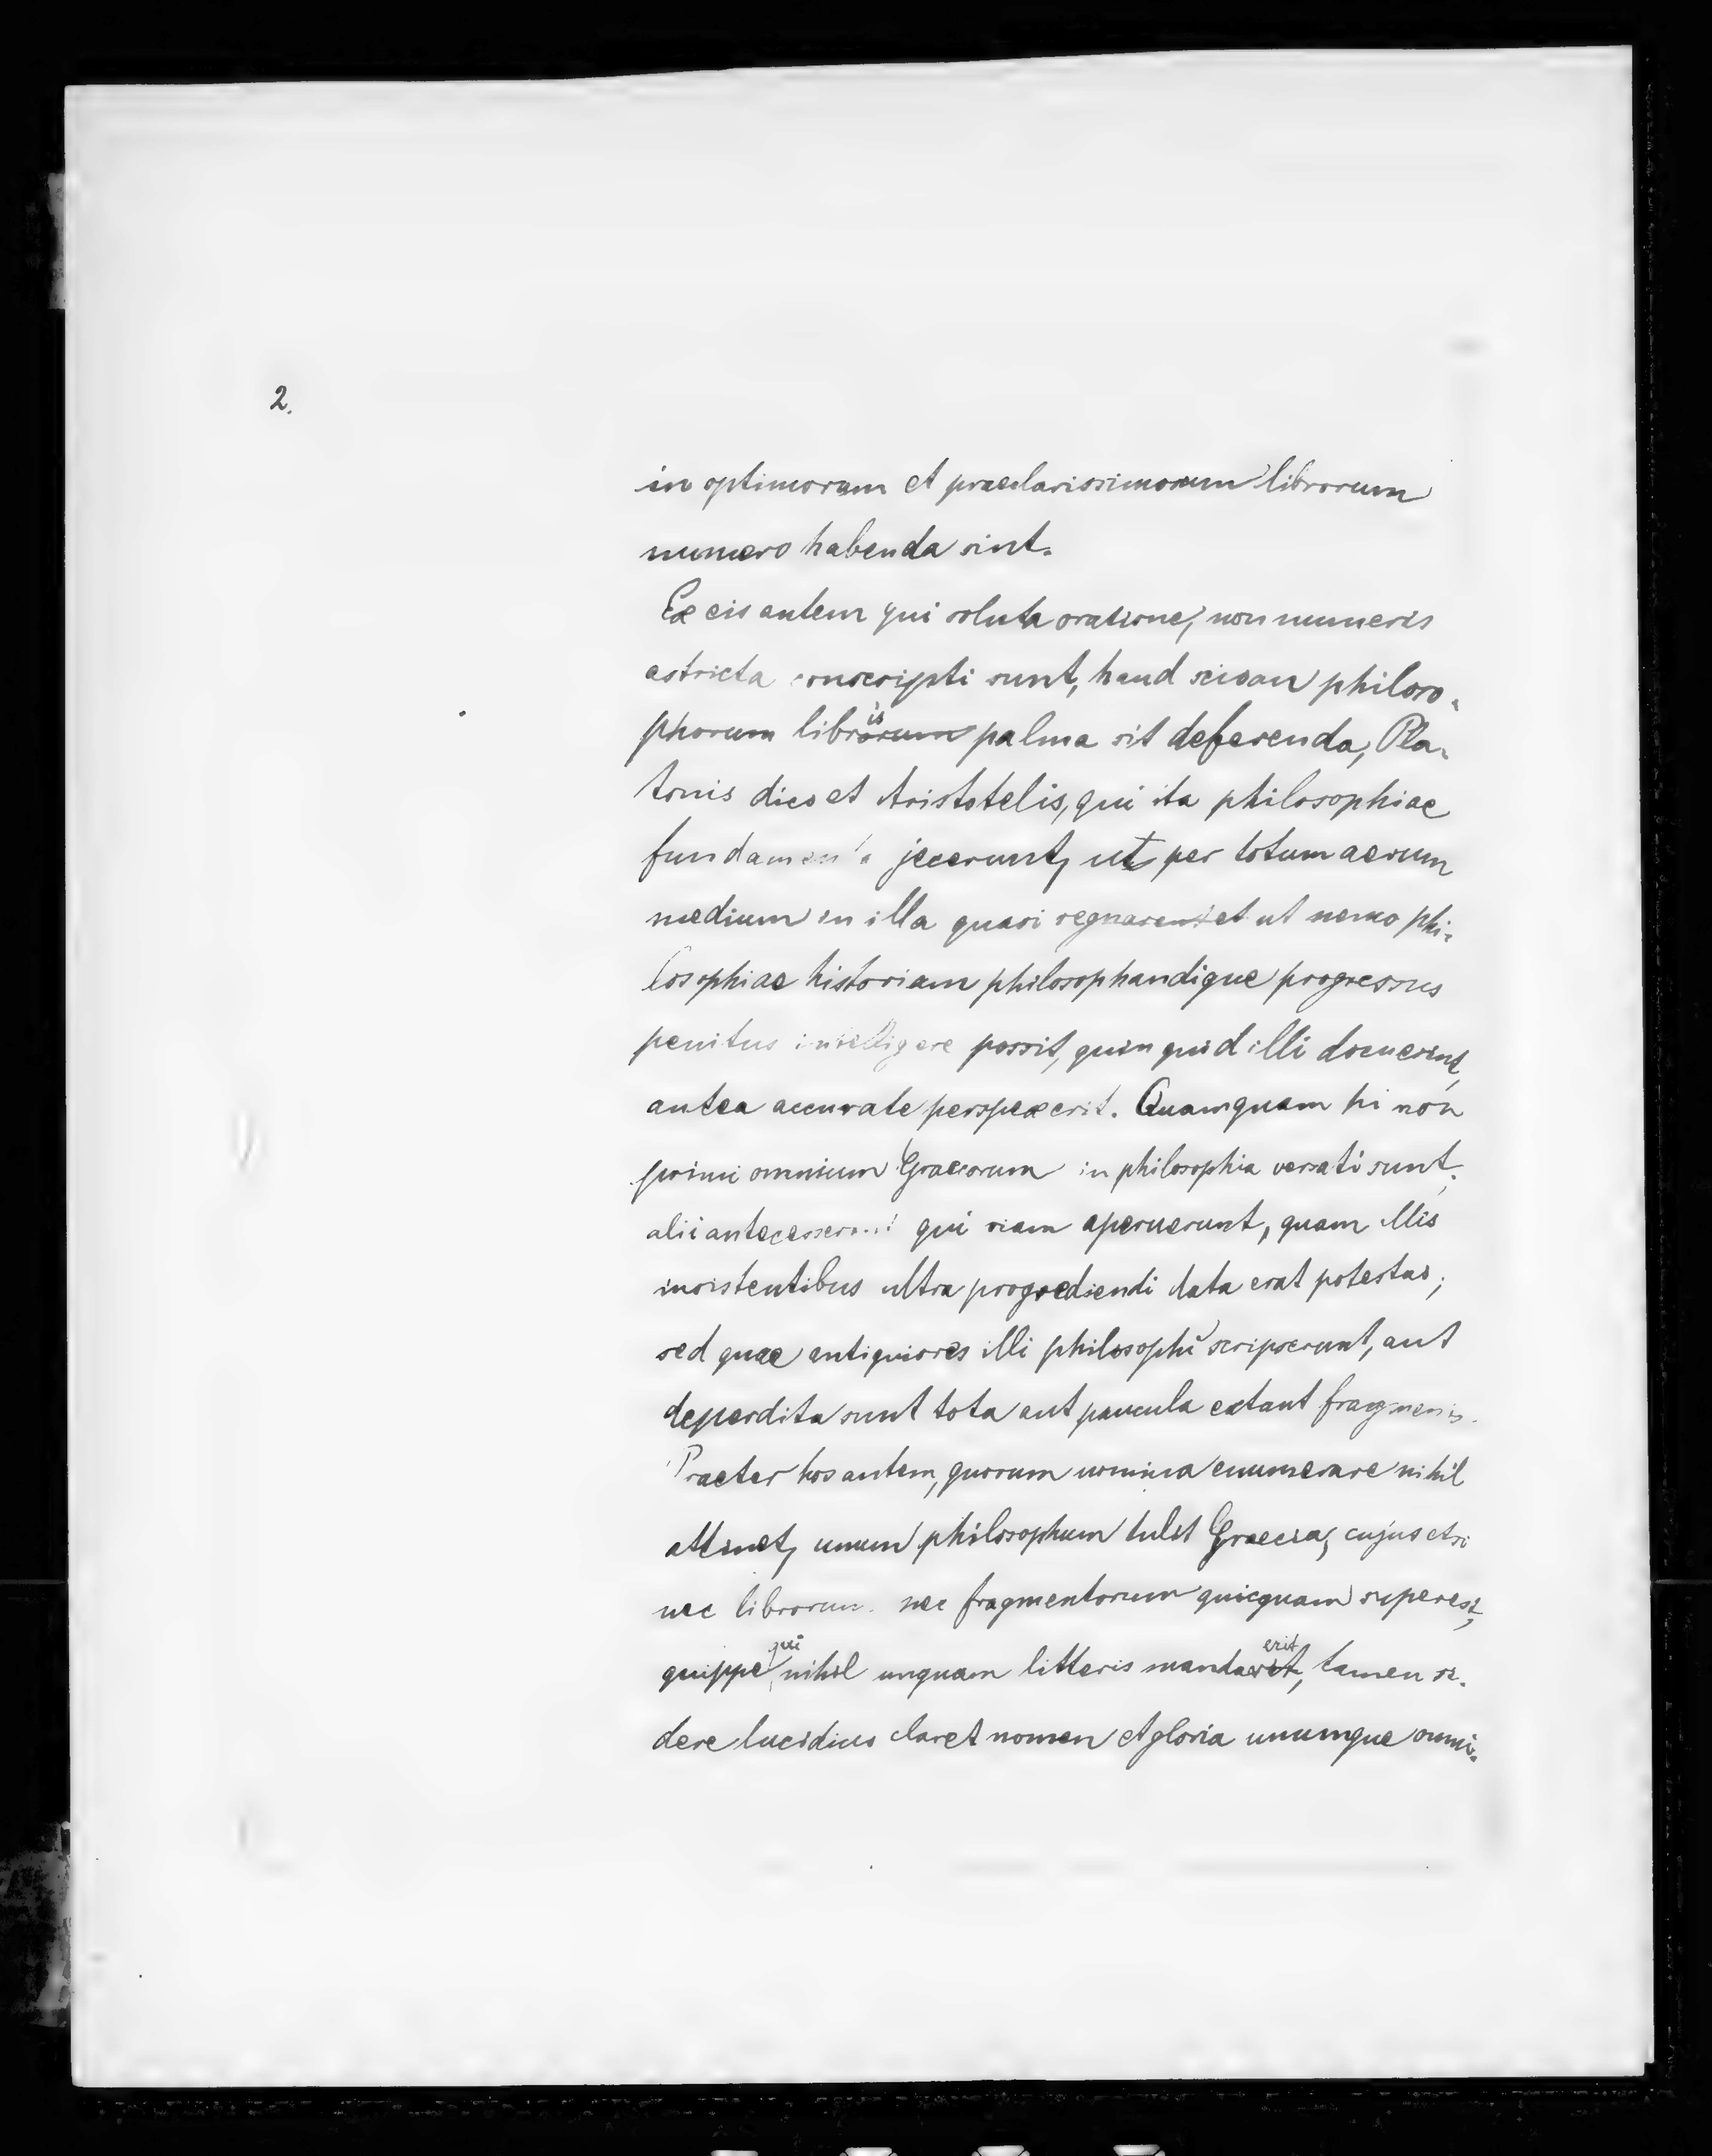 2.
in optimorum et praeclarissimorum librorum
numero habenda sint.
Ex eis autem qui soluta oratione, non numeris
astricta conscripti sunt, haud scio an philoso-
phorum librorum is palma sit deferenda, Pla-
tonis dico et Aristotelis, qui ita philosophiae
fundamenta jecerunt, ut per totum aevum
medium in illa quasi regnarent et ut nemo phi-
losophiae historiam philosophandique progressus
penitus intelligere possit, quin quid illi docuerint,
antea accurate perspexerit. Quamquam hi non
primi omnium Graecorum in philosophia versati sunt;
alii antecesserunt qui viam aperuerunt, quam illis
insistentibus ultra progrediendi data erat potestas;
sed quae antiquiores illi philosophi scripserunt, aut
deperdita sunt tota aut paucula extant
Praeter hos autem, quorum nomina enumerare nihil
attinet, unum philosophum tulit Graecia, cujus etsi
nec librorum nec fragmentorum quicquam superest,
quippe qui nihil unquam litteris mandaret erit, tamen si-
dere lucidius claret nomen et gloria unumque omni-